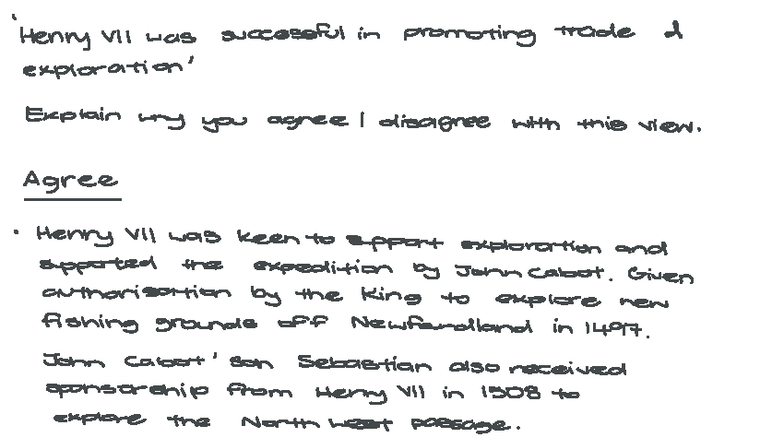 'Henry VII was successful in promoting trade &
exploration'
Explain why you agree / disagree with this view.
Agree
• Henry VII was keen to support exploration and
supported the expedition by John Cabot. Given
authorisation by the King to explore new
fishing grounds off Newfoundland in 1497.
John Cabot' son Sebastian also received
sponsorship from Henry VII in 1508 to
explore the North West passage.